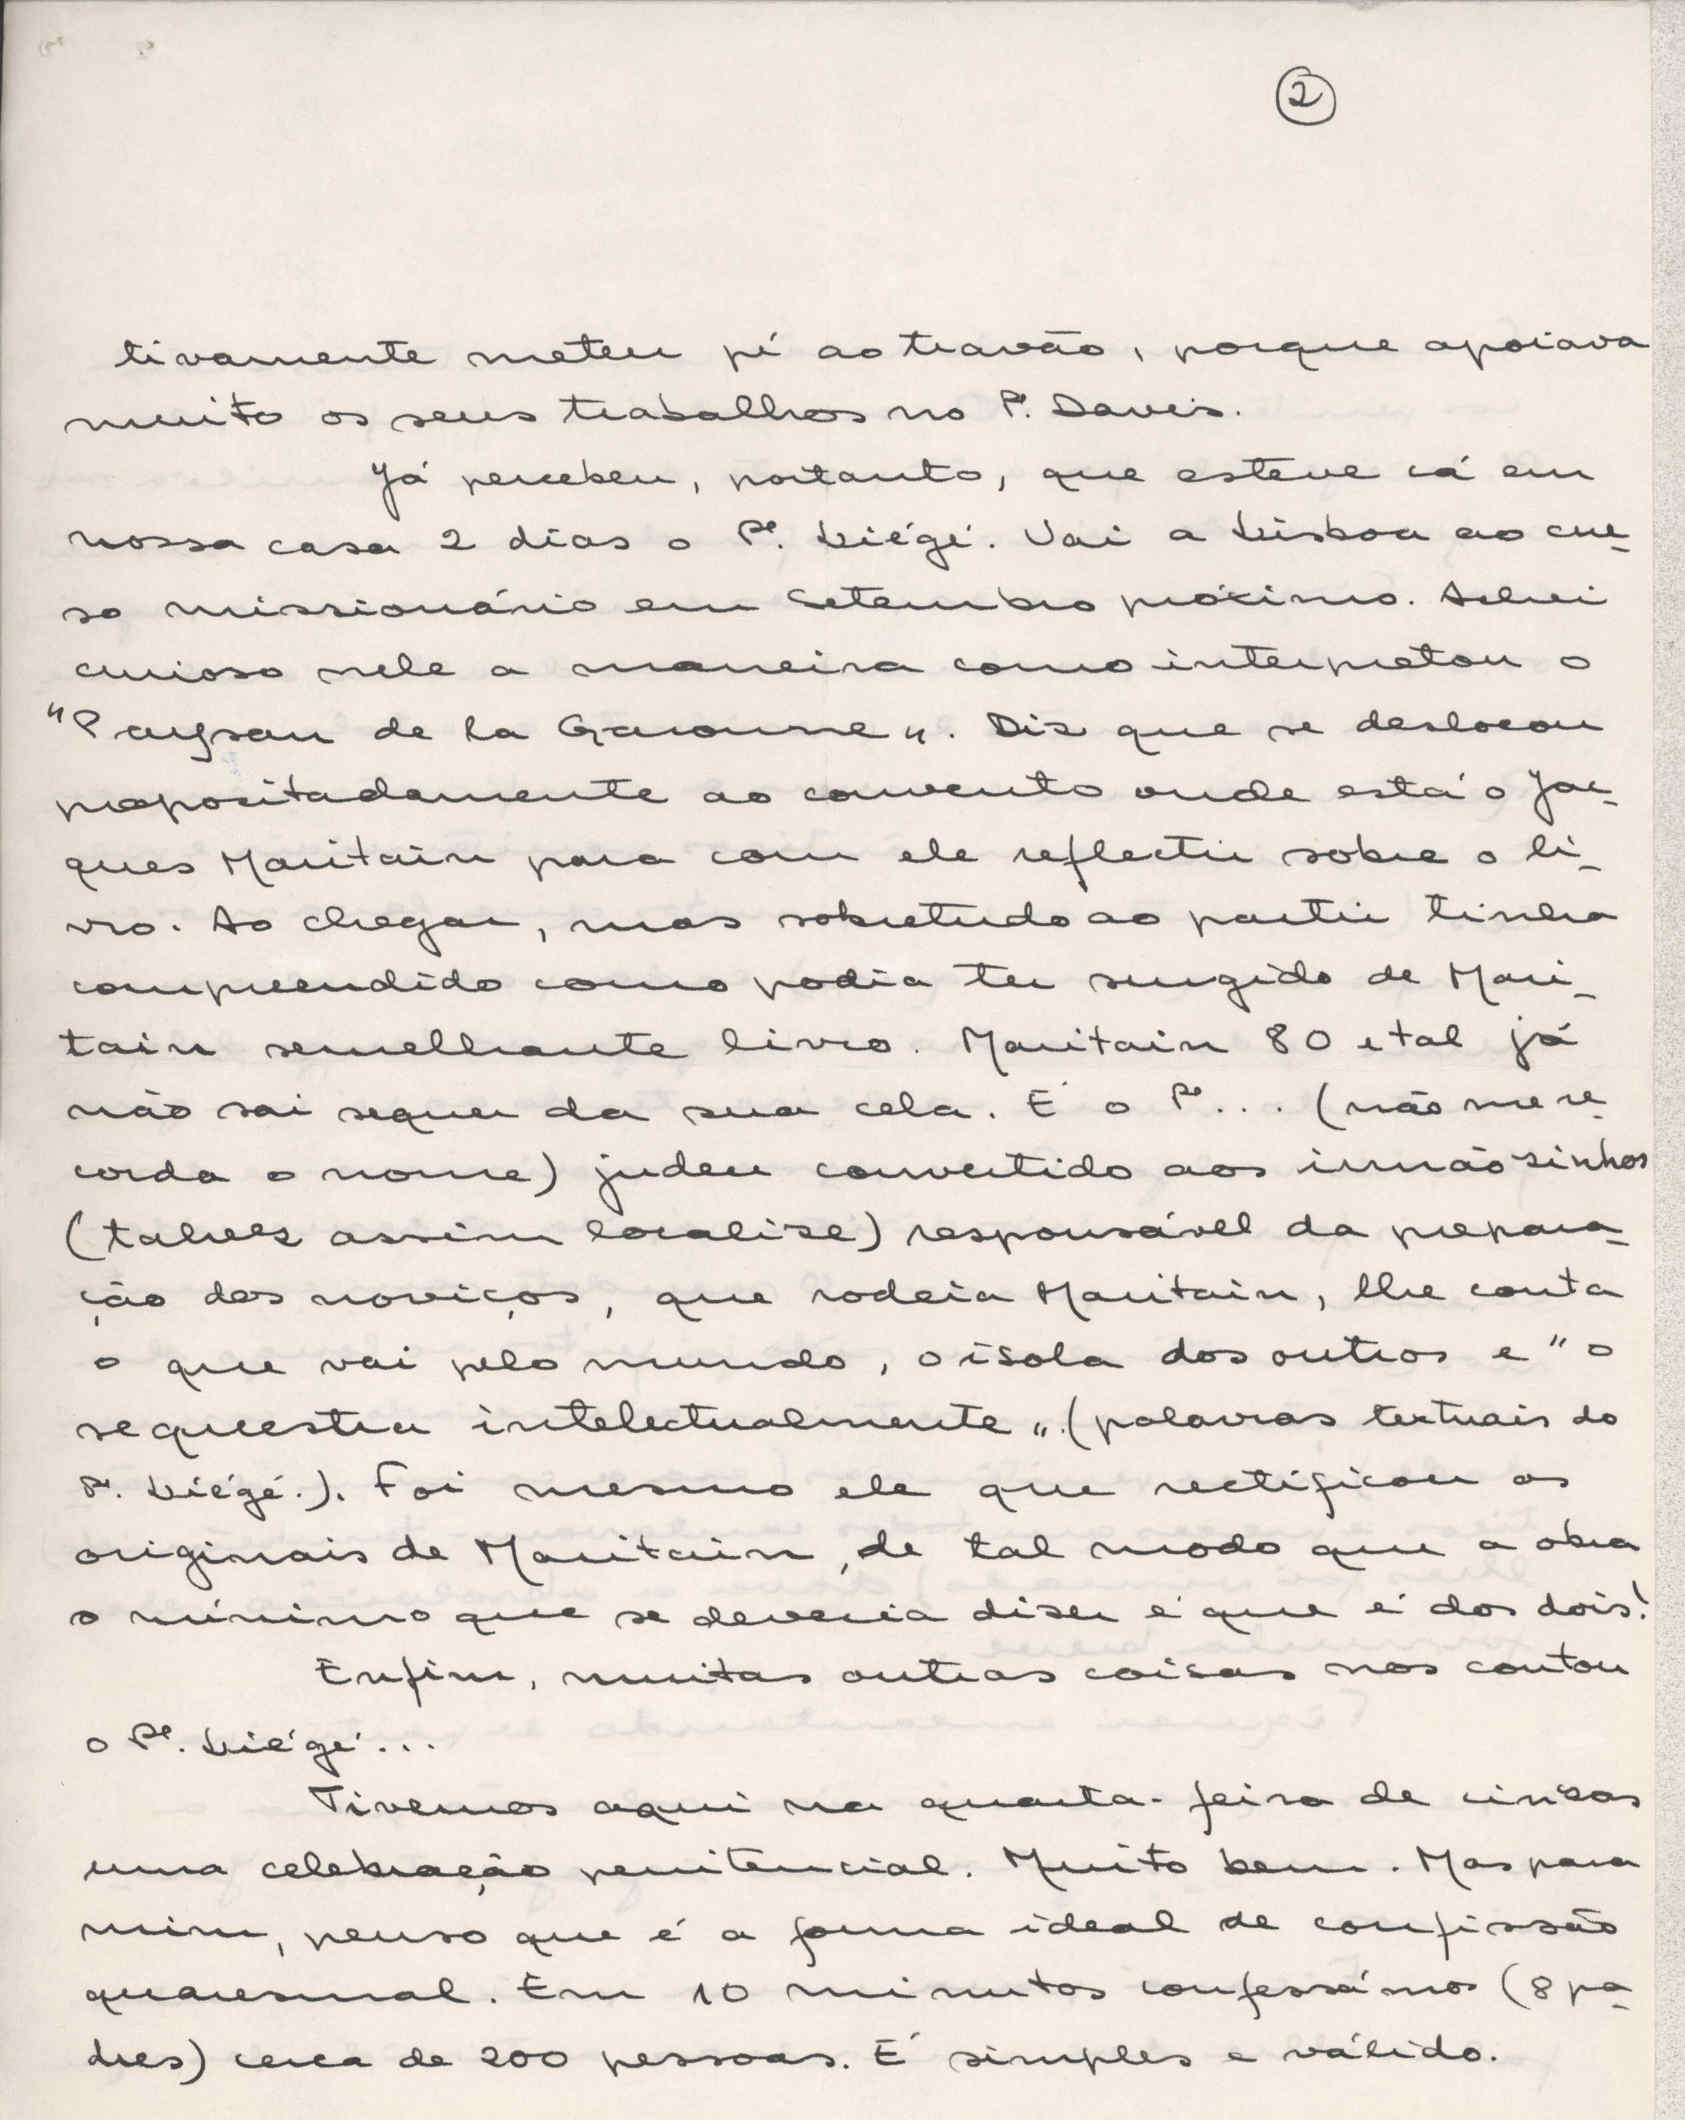 2
tivamente meteu pé ao travão, porque apoiava
muito os seus trabalhos no P. Daveis.
Já percebeu, portanto, que esteve cá em
nossa casa 2 dias o Pe. Liégé. Vai a Lisboa ao cur-
so missionário em Setembro próximo. Achei
curioso nele a maneira como interpretou o
"Paysan de la Garonne". Diz que se deslocou
propositadamente ao convento onde está o Jac-
ques Maritain para com ele reflectir sobre o li-
vro. Ao chegar, mas sobretudo ao partir tinha
compreendido como podia ter surgido de Mari-
tain semelhante livro. Maritain 80 e tal já
não sai sequer da sua cela. É o Pe... (não me re-
corda o nome) judeu convertido aos irmãosinhos
(talvez assim localize) responsável da prepara-
ção dos noviços, que rodeia Maritain, lhe conta
o que vai pelo mundo, o isola dos outros e "o
sequestra intelectualmente". (palavras textuais do
Pe. Liégé.). Foi mesmo ele que rectificou os
originais de Maritain, de tal modo que a obra
o mínimo que se deveria dizer é que é dos dois!
Enfim, muitas outras coisas nos contou
o Pe. Liégé...
Tivemos aqui na quarta-feira de cinzas
uma celebração penitencial. Muito bem. Mas para
mim, penso que é a forma ideal de confissão
quaresmal. Em 10 minutos confessámos (8 pa-
dres) cerca de 200 pessoas. É simples e válido.